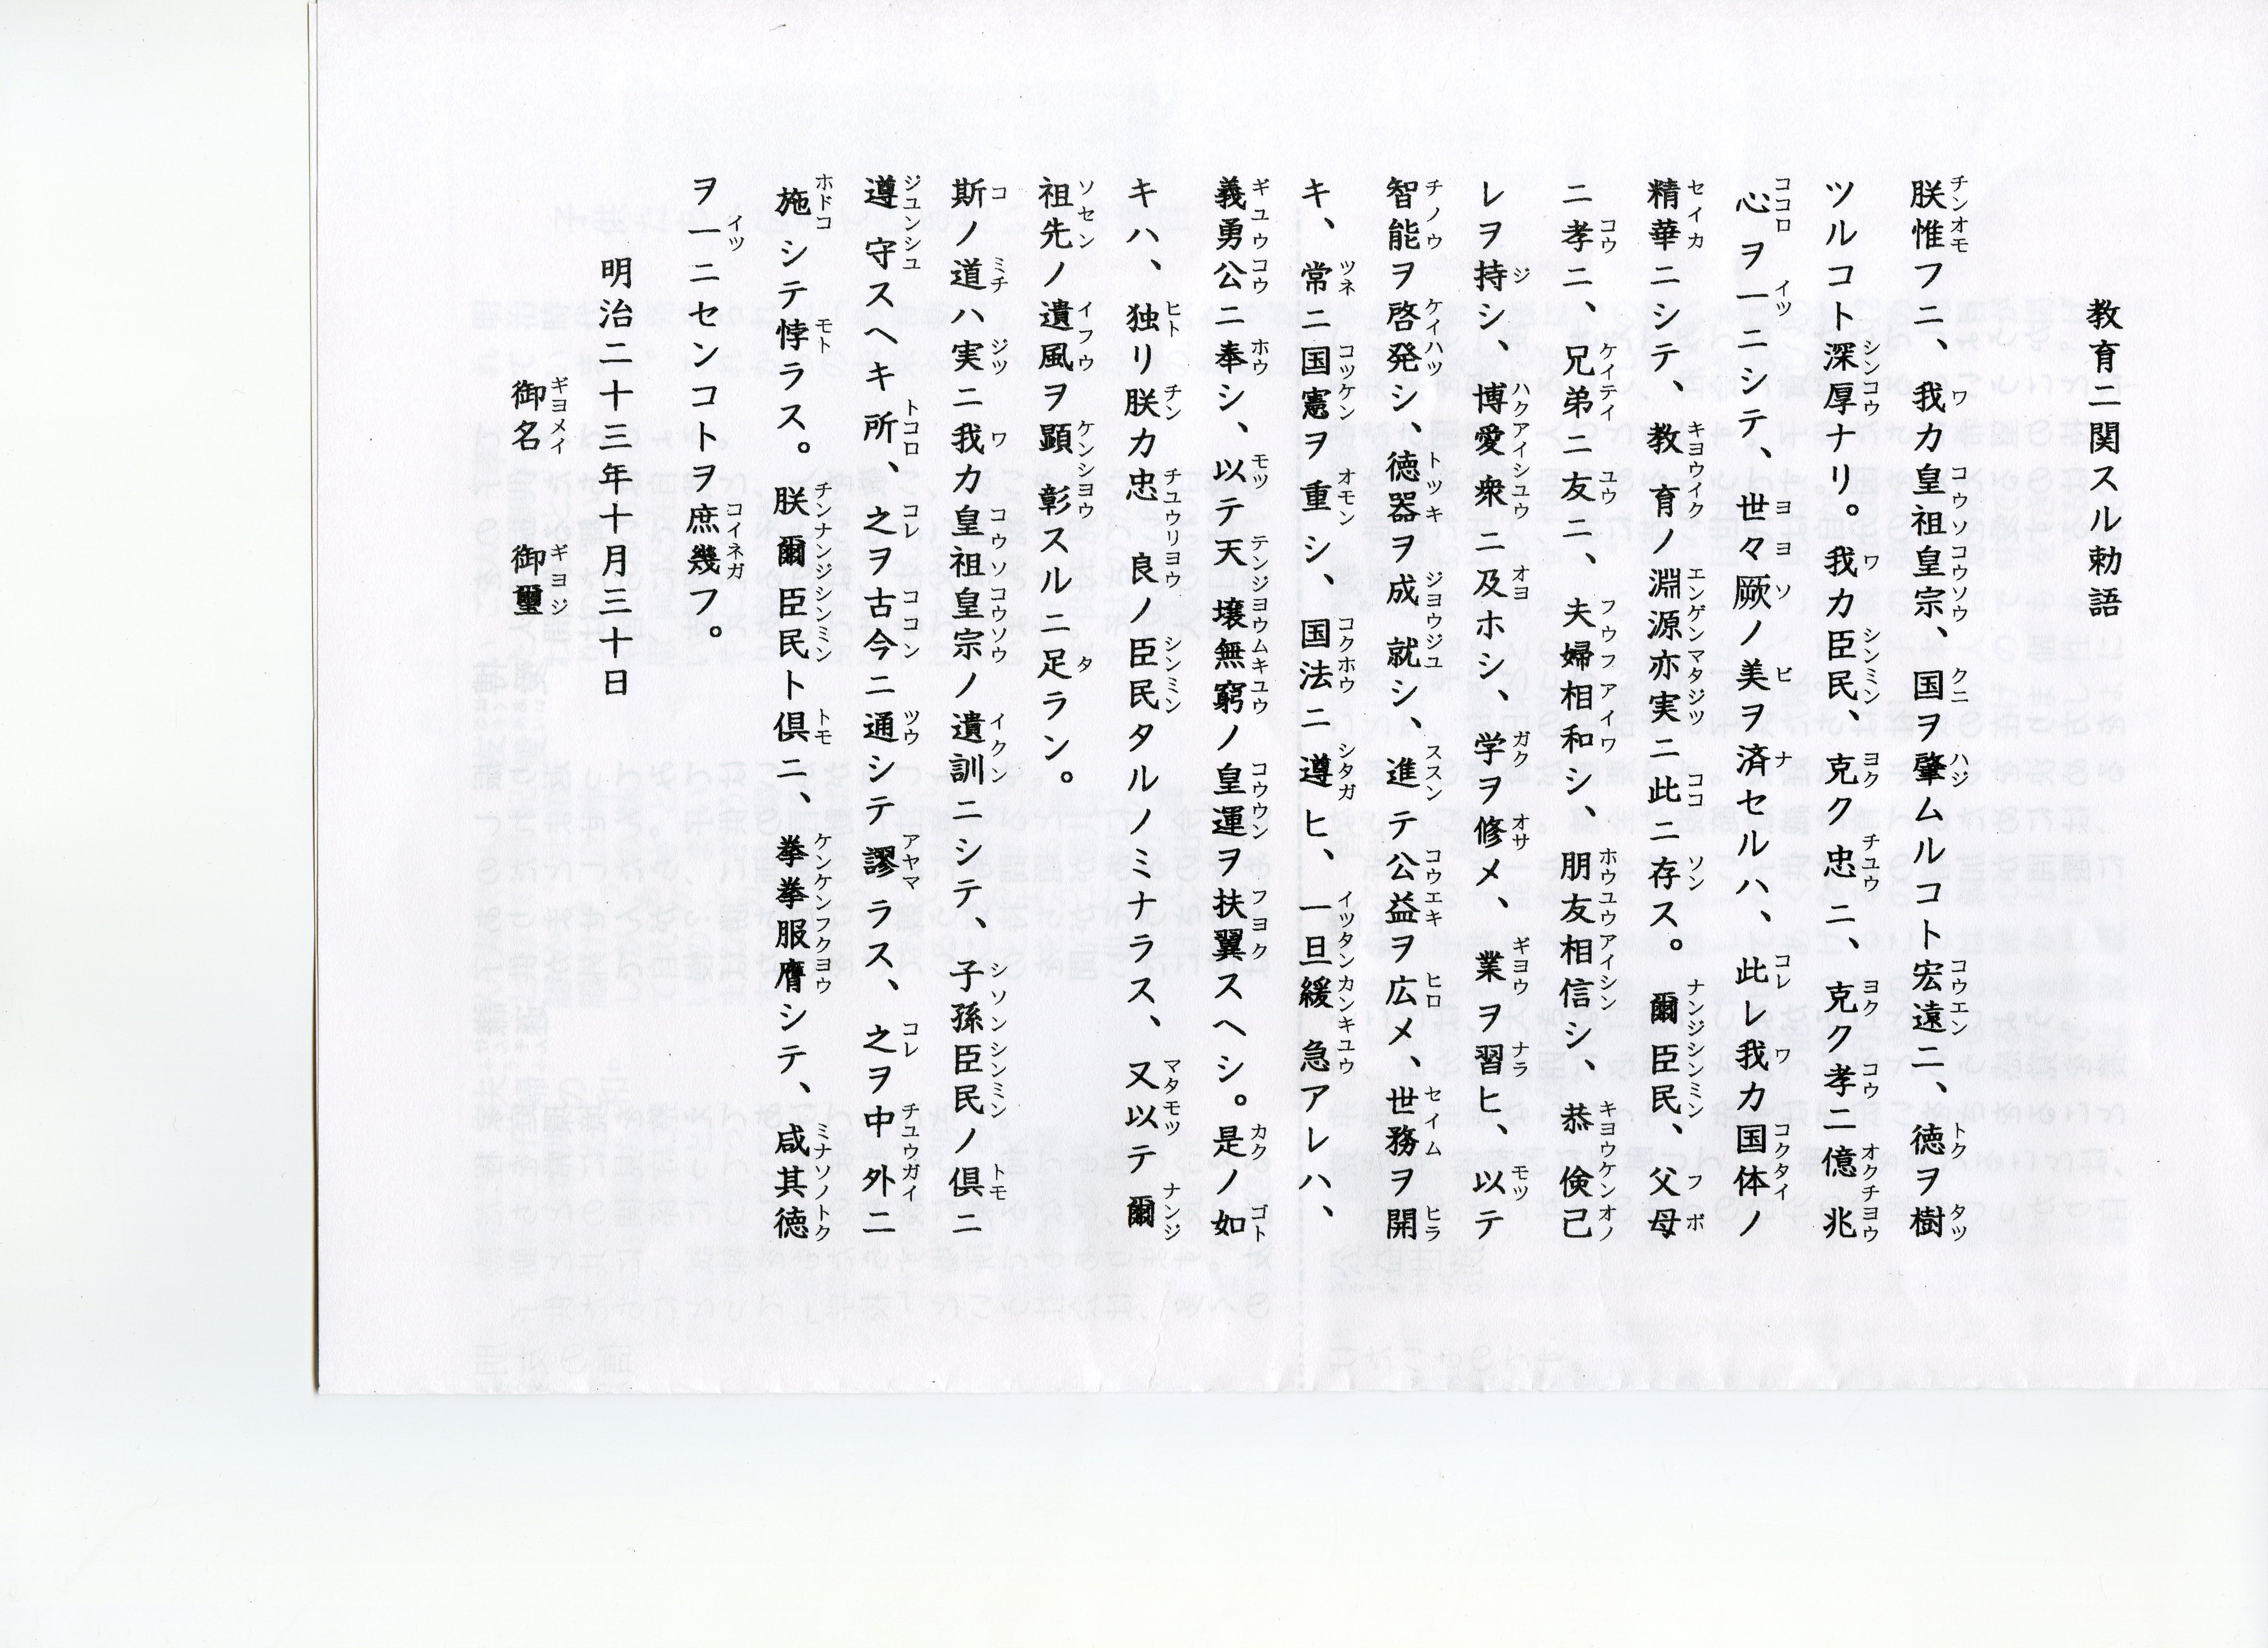 教育ニ関スル勅語
朕惟フニ、我カ皇祖皇宗、国ヲ肇ムルコト宏遠ニ、徳ヲ樹
ツルコト深厚ナリ。我カ臣民、克ク忠ニ、克ク孝ニ億兆
心ヲ一ニシテ、世々厥ノ美ヲ済セルハ、此レ我カ国体ノ
精華ニシテ、教育ノ淵源亦実ニ此ニ存ス。爾臣民、父母
ニ孝ニ、兄弟ニ友ニ、夫婦相和シ、朋友相信シ、恭倹己
レヲ持シ、博愛衆ニ及ホシ、学ヲ修メ、業ヲ習ヒ、以テ
智能ヲ啓発シ、徳器ヲ成就シ、進テ公益ヲ広メ、世務ヲ開
キ、常ニ国憲ヲ重シ、国法ニ遵ヒ、一旦緩急アレハ、
義勇公ニ奉シ、以テ天壌無窮ノ皇運ヲ扶翼スヘシ。是ノ如
キハ、独リ朕カ忠良ノ臣民タルノミナラス、又以テ爾
祖先ノ遺風ヲ顕彰スルニ足ラン。
斯ノ道ハ実ニ我カ皇祖皇宗ノ遺訓ニシテ、子孫臣民ノ倶ニ
遵守スヘキ所、之ヲ古今ニ通シテ謬ラス、之ヲ中外ニ
施シテ悖ラス。朕爾臣民ト倶ニ、拳拳服膺シテ、咸其徳
ヲ一ニセンコトヲ庶幾フ。
明治二十三年十月三十日
御名　御璽